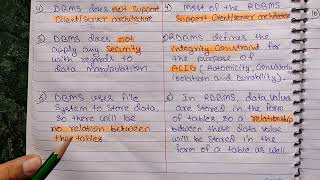 4) DBMS does not support
Client/server architecture
5) DBMS does not
apply any security
with regards to
data manipulation
6) DBMS uses file
system to store data,
so there will be
no relation between
the tables
4) Most of the RDBMS
Support Client/server architecture
5) RDBMS defines the
integrity constraint for
the purpose of
ACID (Automicity, Consistency
Isolation and Durability).
6) In RDBMS, data values
are stored in the form
of tables, so a relationship
between these data value
will be stored in the
form of a table as well.